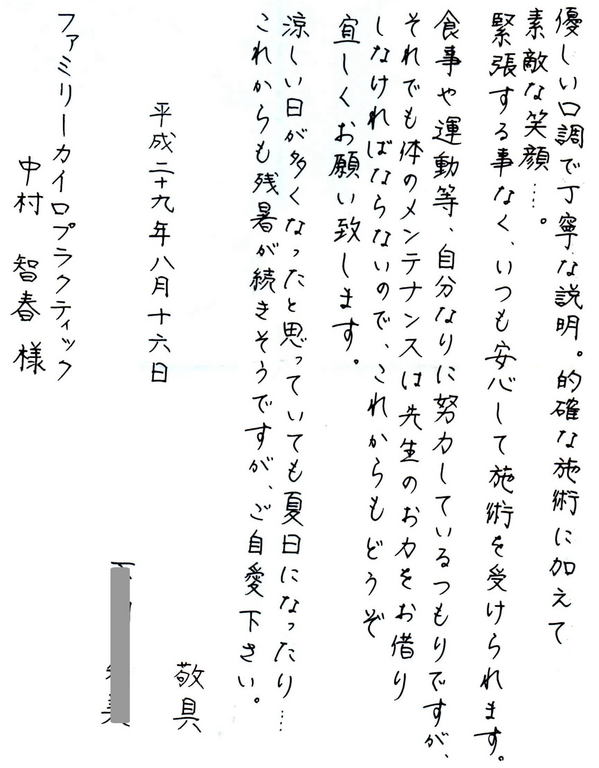 優しい口調で丁寧な説明。的確な施術に加えて
素敵な笑顔…。
緊張する事なく、いつも安心して施術を受けられます。
食事や運動等、自分なりに努力しているつもりですが、
それでも体のメンテナンスは先生のお力をお借り
しなければならないので、これからもどうぞ
宜しくお願い致します。
涼しい日が多くなったと思っていても夏日になったり…
これからも残暑が続きそうですが、ご自愛下さい。
敬具
平成二十九年八月十六日
ファミリーカイロプラクティック
中村 智春 様